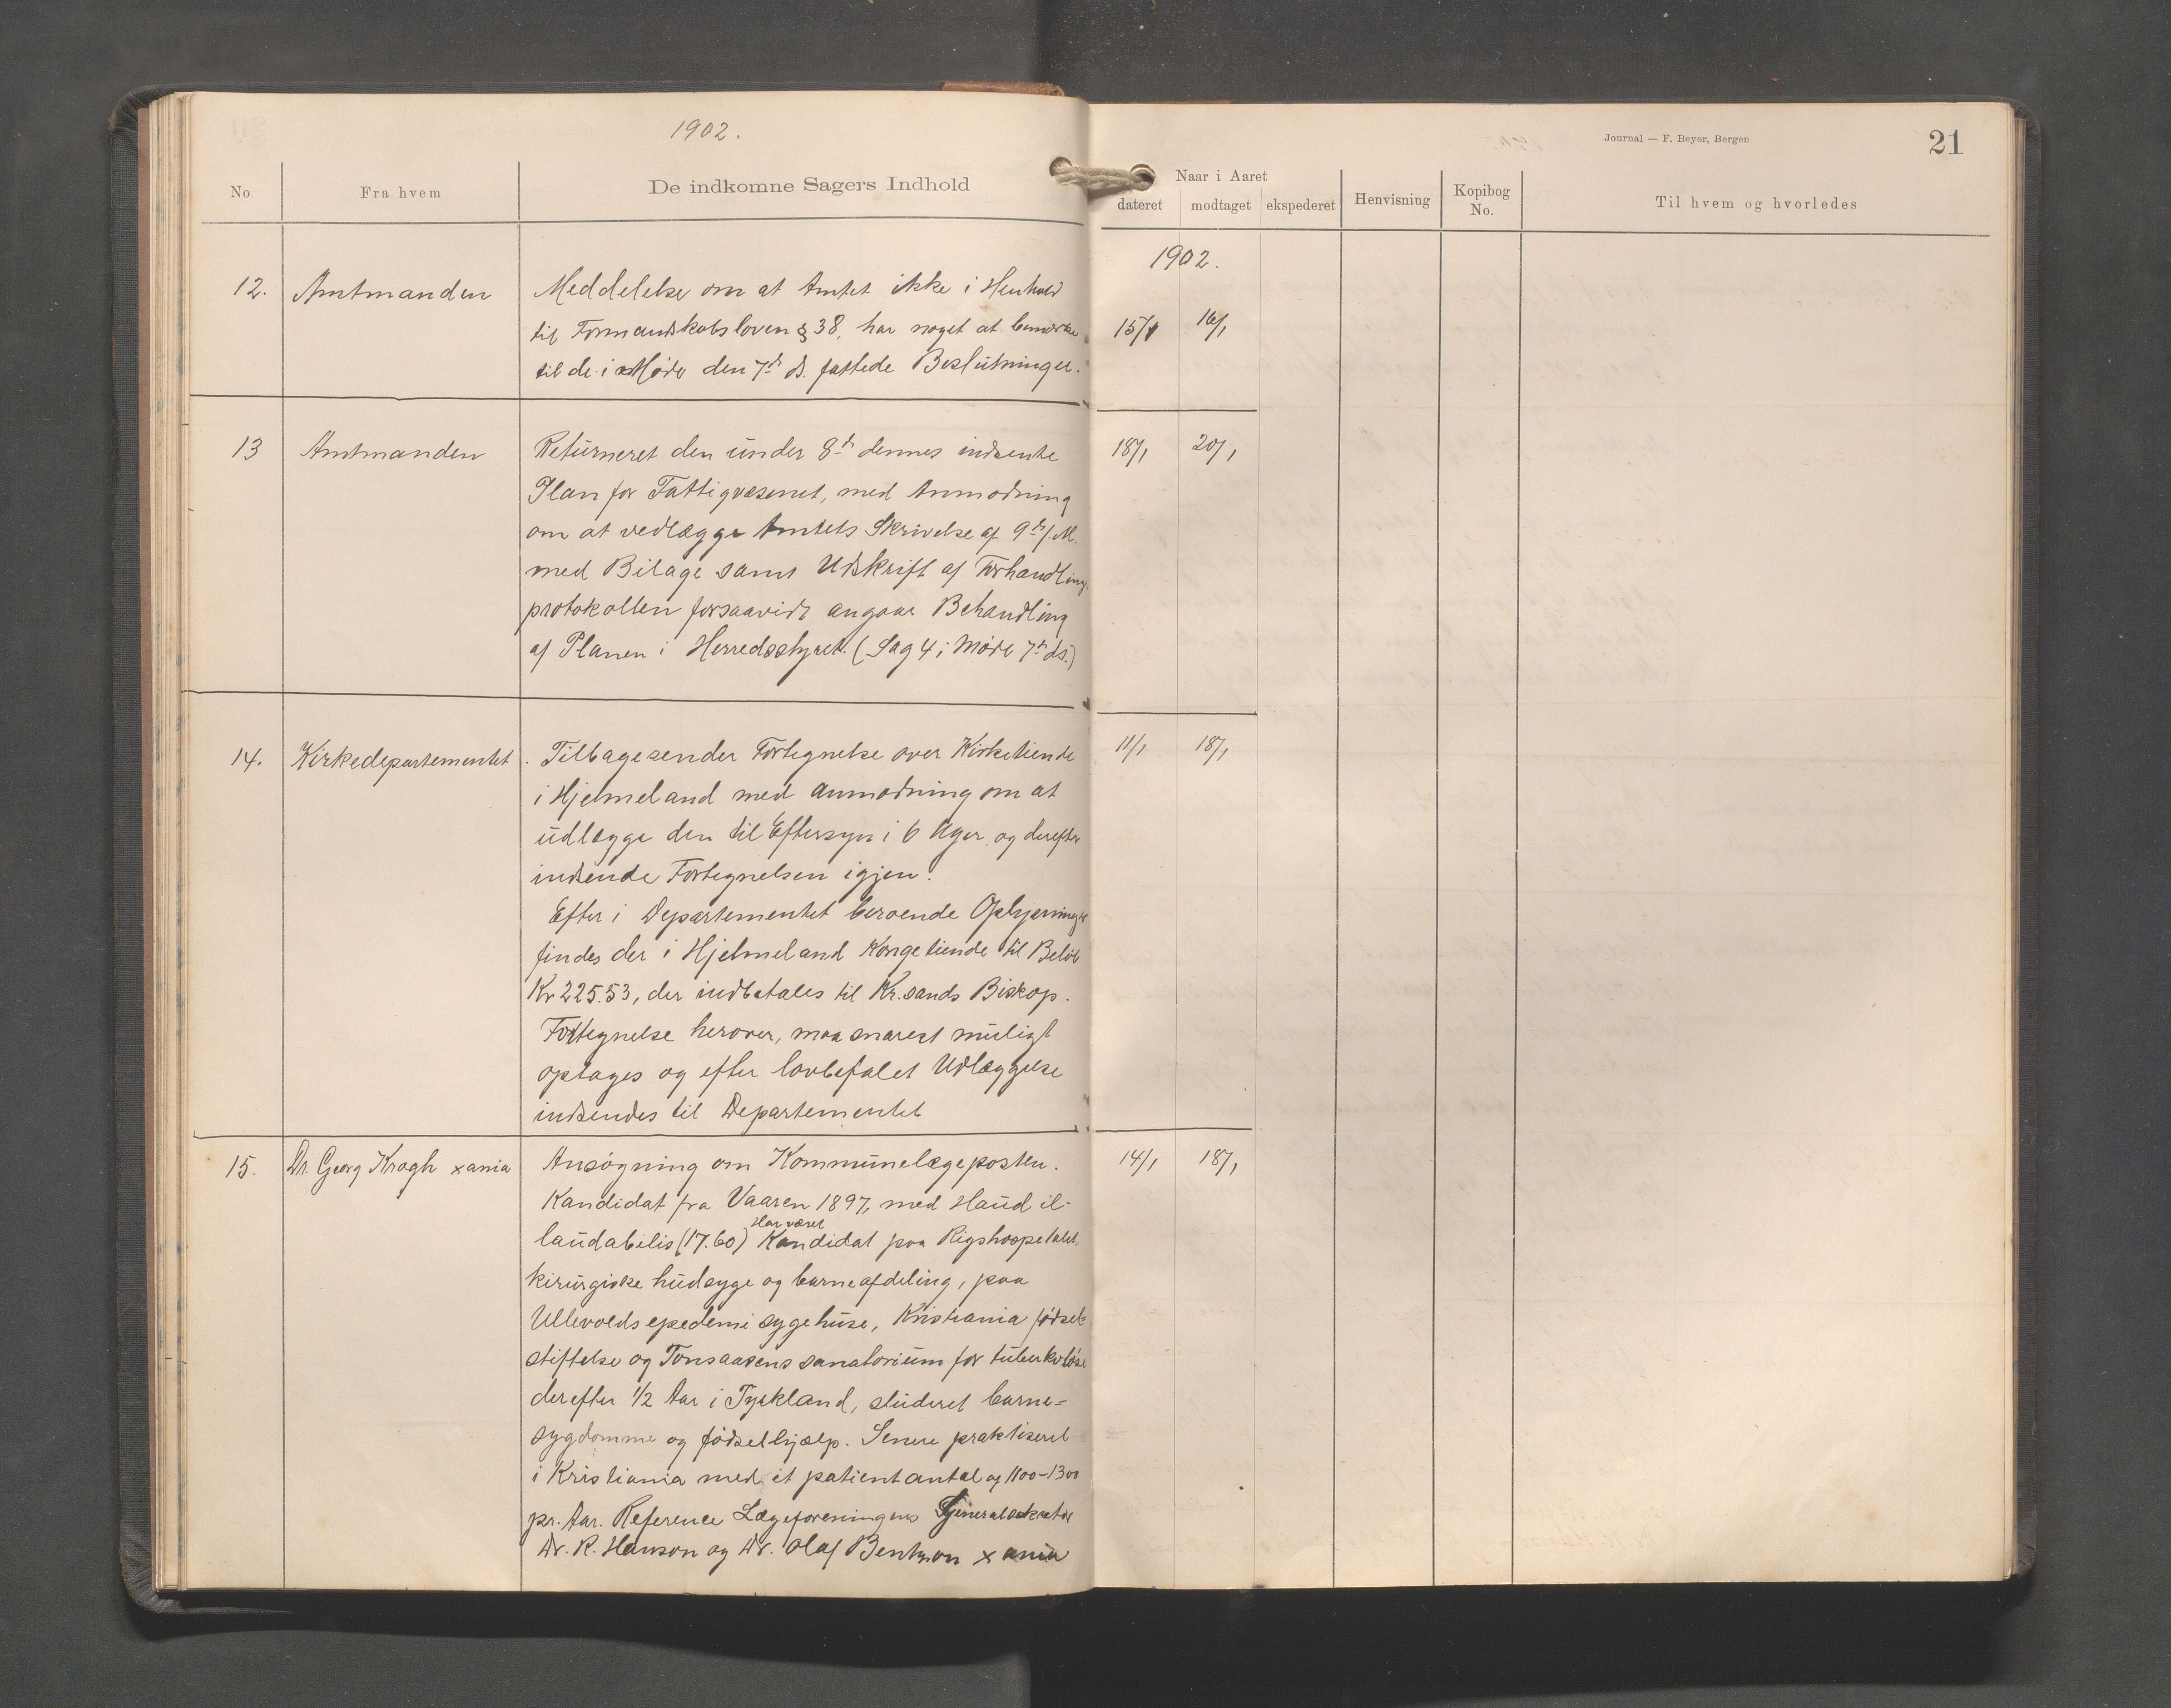 1902.
No.
Fra hvem
De indkomne Sagers Indhold
12.
Amtmanden
Meddelelse om at Amtet ikke i Henhold
til Formandskabsloven § 38, har noget at bemærke
til de i Møde den 7de ds. fattede Beslutninger.
13
Amtmanden
Returneret den under 8de dennes indsente
Plan for Fattigvæsenet, med Anmodning
om at vedlægge Amtets Skrivelse af 9de f. M.
med Bilage samt Udskrift af Forhandlings
protokollen forsaavidt angaar Behandling
af Planen i Herredsstyret. (Sag 4 i Møde 7de ds.)
14.
Kirkedepartementet
Tilbagesender Fortegnelse over Kirketiende
i Hjelmeland med anmodning om at
udlægge den til Eftersyn i 6 Uger, og derefter
indsende Fortegnelsen igjen.
Efter i Departementet beroende Oplysninger
findes der i Hjelmeland Kongetiende til Beløb
Kr 225.53, der indbetales til Kr.sands Biskop.
Fortegnelse herover, maa snarest muligt
optages og efter lovbefalet Udlæggelse
indsendes til Departementet
15.
Dr. Georg Krogh xania
Ansøgning om Kommunelægeposten.
Kandidat fra Vaaren 1897, med Haud il-
laudabilis (17.60) Har været Kandidat paa Rigshospetalet,
kirurgiske hudsyge og barneafdeling, paa
Ullevolds epedemi sygehuse, Kristiania fødsel-
stiftelse og Tonsaasens sanatorium for tuberkuløse
derefter 1/2 Aar i Tyskland, studeret barne=
sygdomme og fødselhjælp. Senere praktiseret
i Kristiania med et patientantal af 1100-1300
pr. Aar. Reference Lægeforeningens Generalsekretær
Dr. R. Hanson og Dr. Olaf Bentzon xania
Journal — F. Beyer, Bergen
21
Naar i Aaret
dateret
modtaget
ekspederet
Henvisning
Kopibog
No.
Til hvem og hvorledes
1902.
15/1
16/1
18/1
20/1
11/1
18/1
14/1
18/1